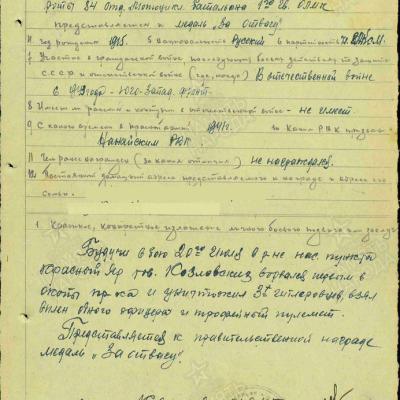 роты 84 отд. Мотоцикл. батальона 1го Гв. ОЛМК
представляется к медаль „За отвагу"
4 год рождения 1915. 5 национальность Русский 6 партийность чл. ВКП(б)
7 Участие в гражданской войне, последующих боевых действиях по защите
СССР и отечественной войне (где, когда) В отечественной войне
с 1943 года - Юго-Запад. фронт.
8 Имеет ли ранения и контузии в отечественной войне - не имеет.
9 С какого времени в красной армии 1941 г. 10 Каким РВК призван
РВК
11 Чем ранее награжден (за какие отличия) не награждался.
12 Постоянный домашний адрес представляемого к награде и адрес его
семьи.
1 Краткое, конкретное изложение личного боевого подвига или заслуг
Будучи в бою 20го июля с.г. на нас. пункт
Красный Яр гв. Козловских ворвался первым в
и уничтожил 3х гитлеровцев, взял
в плен одного офицера и трофейный пулемет.
Представляется к правительственной награде
медали „За отвагу".